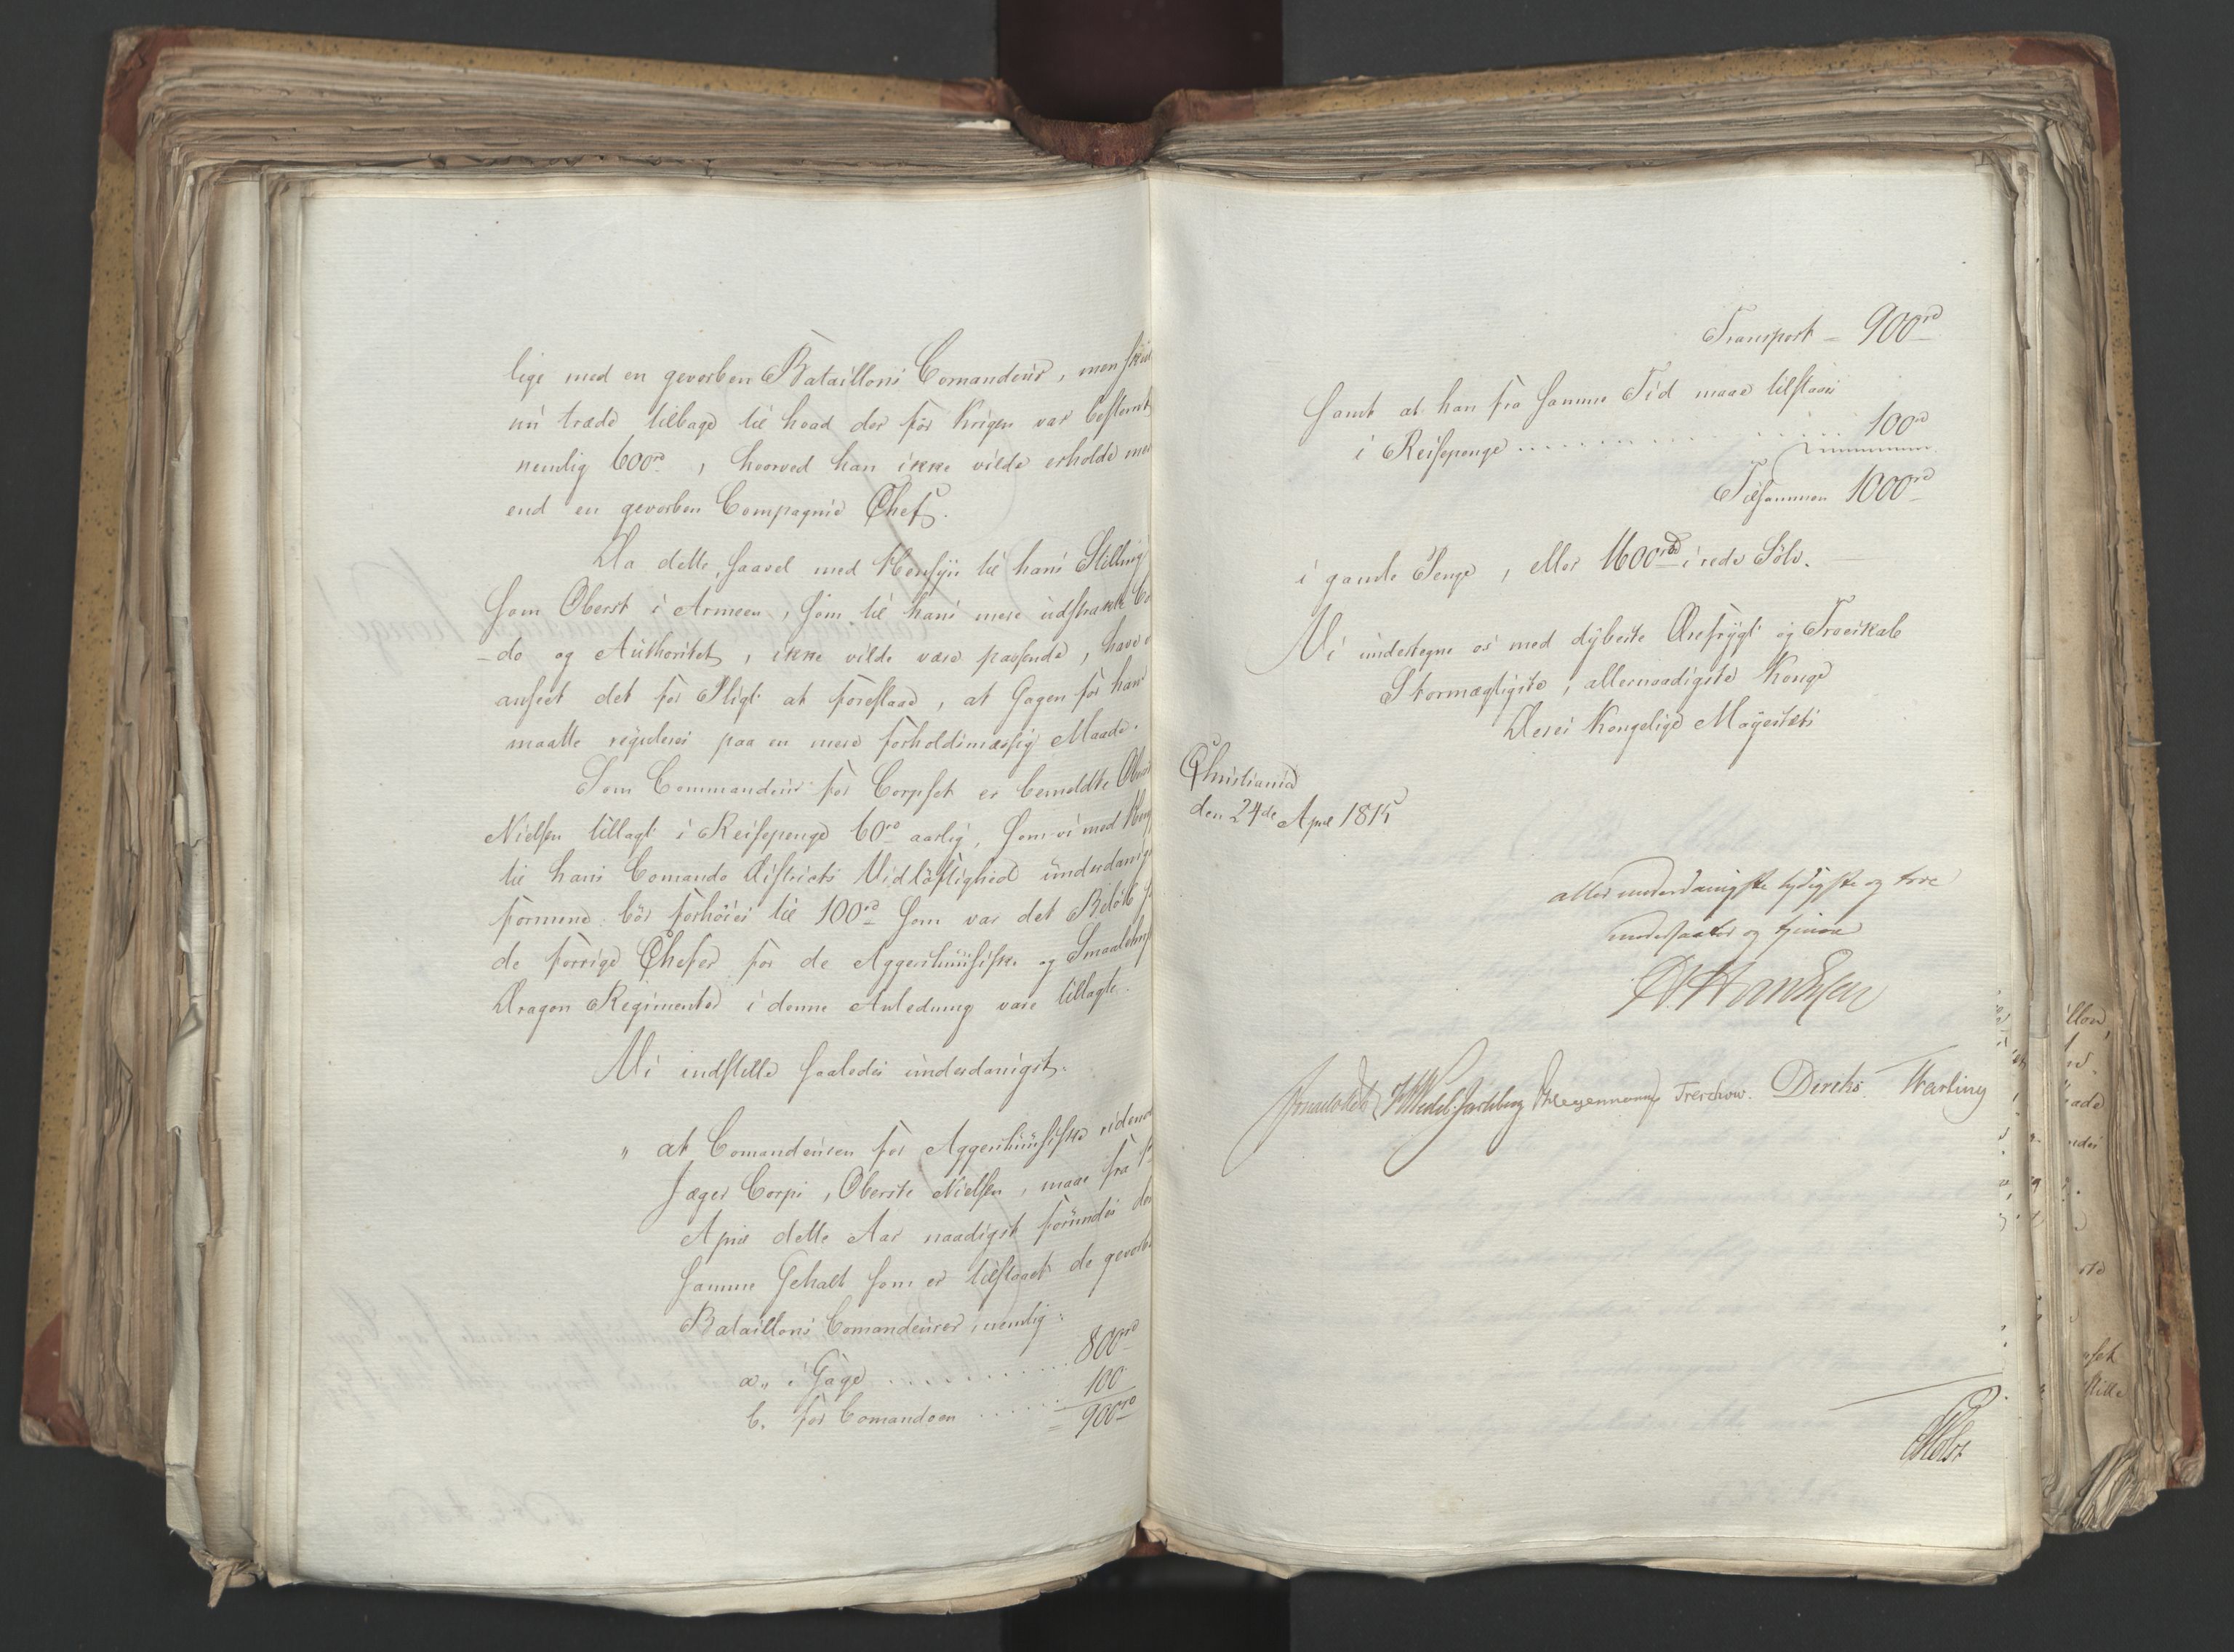 lige med en gevorben Bataillons Comandeur, men
nu træde tilbage til hvad der før Krigen var bestemt
nemlig 600rd, hvorved han ikke vilde erholde
end en gevorben Compagnie Chef.
Da dette, saavel med Hensyn til hans Stilling
som Oberst i Armeen, som til hans mere udstrakte
-do og Authoritet, ikke vilde være passende, have
anseet det for Pligt at foreslaae, at Gagen for ham
maatte reguleres paa en mere forholdsmæssig Maade.
Som Commandeur for Corpset er bemeldte
Nielsen tillagt i Reisepenge 60rd aarlig, som vi med
til hans Comando Districts Vidløftighed
formene bør forhøies til 100rd som var det Beløb
de forrige Chefer for de Aggershuusiske og
Dragon Regimenter i denne Anledning vare tillagte.
Vi indstille saaledes underdanigst:
" at Comandeuren for Aggershuusiske
Jæger Corps, Oberste Nielsen, maae fra
April dette Aar naadigst forundes den
samme Gehalt som er tilstaaet de
Bataillons Comandeurer, nemlig:
a, i Gage .......... 800rd
b. for Comandoen ...... 100
= 900rd
Transport = 900rd
samt at han fra samme Tid maae tilstaaes
i Reisepenge .......... 100rd
Tilsammen 1000rd
i gamle Penge, eller 1600rd i rede Sölv.
Vi undertegne os med dybeste Ærefrygt og Troeskab
Stormægtigste, allernaadigste Konge
Deres Kongelige Mayestæts
Christiania
den 24de April 1815
allerunderdanigste lydigste og troe
undersaatter og tjenere
Sommerhielm Wedel Jarlsberg Hegermann Treschow. Diriks. Harbing
Holst